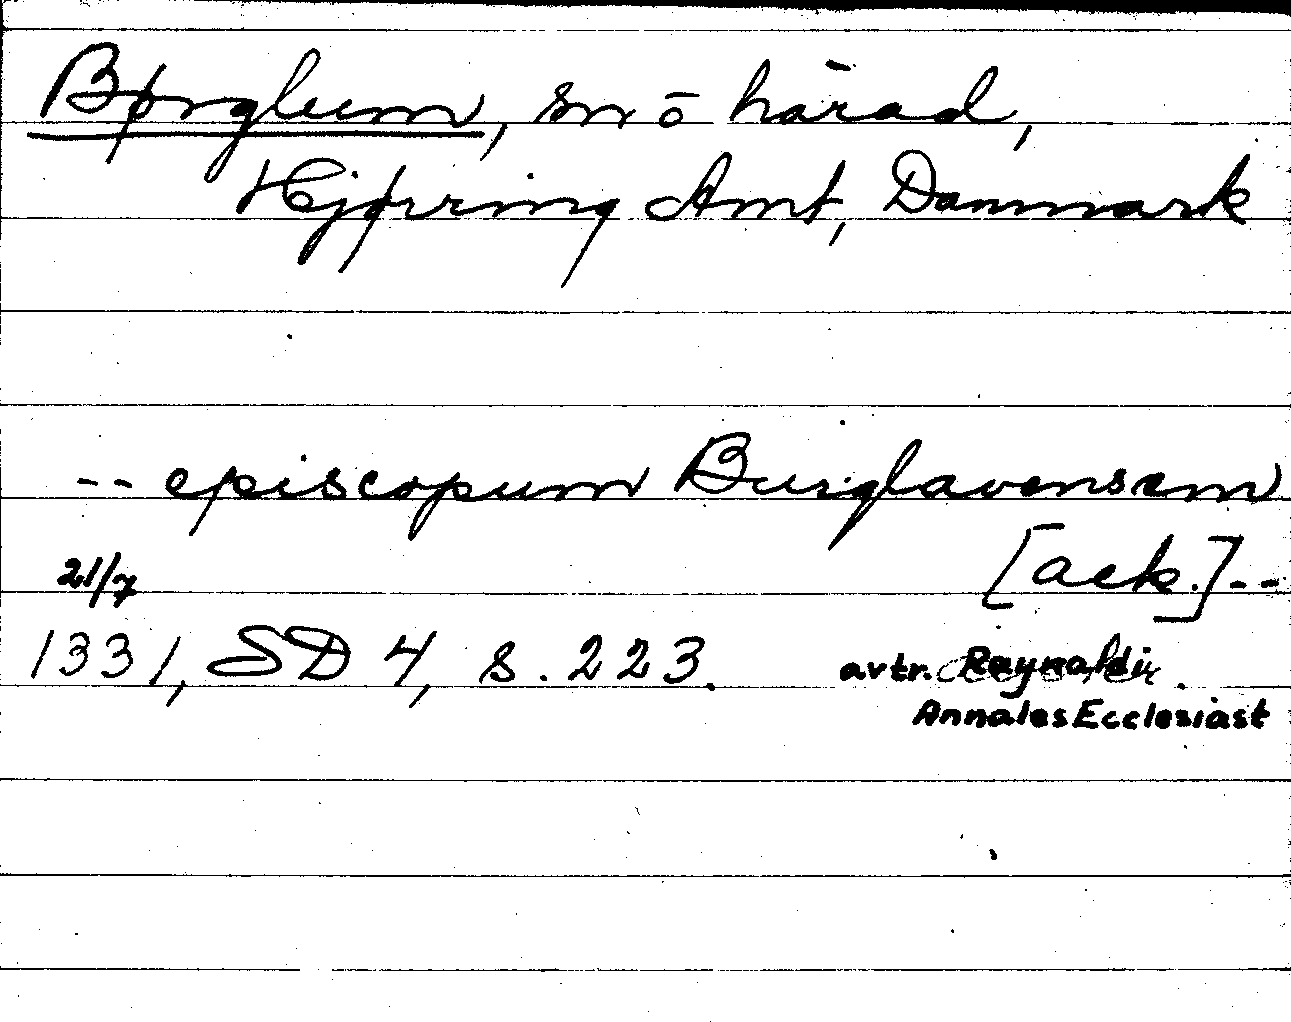 Børglum, sn o härad,
Hjørring Amt, Danmark
-- episcopum Burglavensem
[ack.] --
21/7
1331, SD 4, s. 223. avtr. Raynaldi.
Annales Ecclesiast